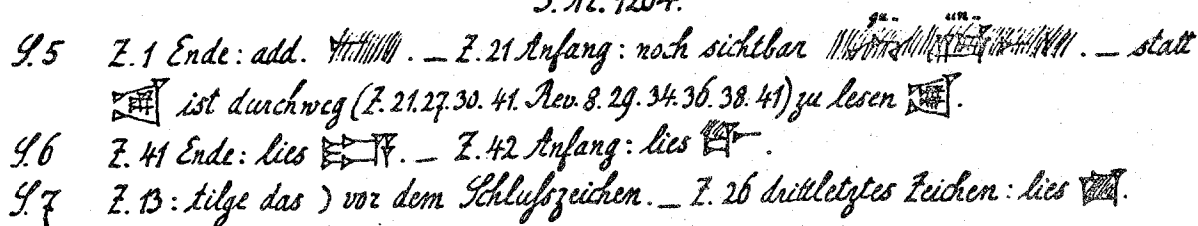 S. 5 Z. 1 Ende: add. . — Z. 21 Anfang: noch sichtbar . — statt
ist durchweg (Z. 21. 27. 30. 41. Rev. 8. 29. 34. 36. 38. 41) zu lesen .
S. 6 Z. 41 Ende: lies . — Z. 42 Anfang: lies .
S. 7 Z. 13: tilge das ) vor dem Schlußzeichen. — Z. 26 drittletztes Zeichen: lies .